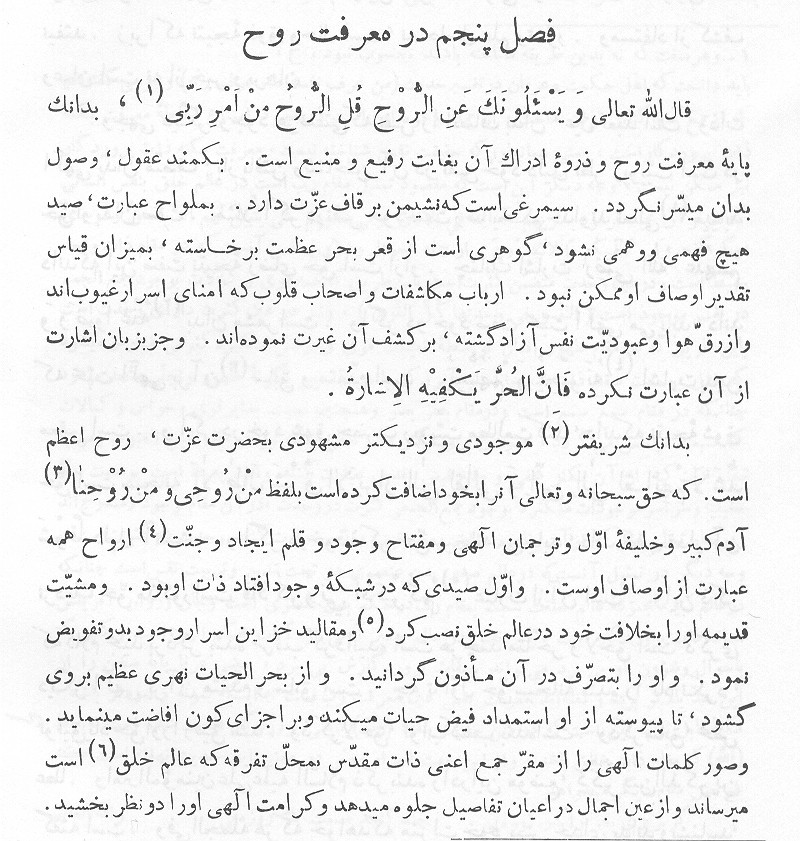 فصل پنجم در معرفت روح
قال‌الله تعالی وَ یَسْئَلُونَكَ عَنِ الرُّوْحِ قُلِ الرُّوحُ مِنْ اَمْرِ رَبِّی (۱) ، بدانك
پایهٔ معرفت روح و ذروهٔ ادراك آن بغایت رفیع و منیع است . بکمند عقول ، وصول
بدان میسّر نگردد . سیمرغی‌است‌که‌نشیمن برقاف‌عزّت دارد . بملواح عبارت، صید
هیچ فهمی ووهمی نشود ، گوهری است از قعر بحر عظمت برخـاسته ، بمیزان قیاس
تقدیر اوصاف اوممکن نبود . ارباب مکاشفات و اصحاب قلوب‌که امنای اسرارغیوب‌اند
وازرقّ‌هوا وعبودیّت نفس‌آزادگشته ، برکشف‌آن غیرت نموده‌اند . وجزبزبان اشارت
از آن عبارت نکرده فَاِنَّ الْحُرَّ یَکْفِیْهِ الِاشارَةُ .
بدانك شریفتر (۲) موجودی و نزدیکتر مشهودی بحضرت عزّت ، روح اعظم
است. که حق سبحانه وتعالی آنرا بخوداضافت کرده‌است بلفظ مِنْ‌رُوحی و مِنْ‌رُوْحِنٰا (۳)
آدم‌کبیر و خلیفهٔ اوّل و ترجمان الٓهی ومفتاح وجود و قلم ایجاد و جنّت (۴) ارواح همه
عبارت از اوصاف اوست . واوّل صیدی‌که درشبکهٔ وجودافتاد ذات اوبود . ومشیّت
قدیمه اورا بخلافت خود درعالم خلق‌نصب‌کرد (۵) ومقالید خزاین اسرار وجود بدوتفویض
نمود . و او را بتصرّف در آن مـأذون گردانید . و از بحرالحیات نهری عظیم بروی
گشود ، تا پیوسته از او استمداد فیض حیات میکند وبراجزای‌کون افاضت مینماید .
وصور کلمات الٓهی را از مقرّ جمع اعنی ذات مقدّس بمحلّ تفرقه‌که عالم خلق (۶) است
میرساند و ازعین اجمال دراعیان تفاصیل جلوه میدهد وکرامت الٓهی اورا دونظر بخشید .